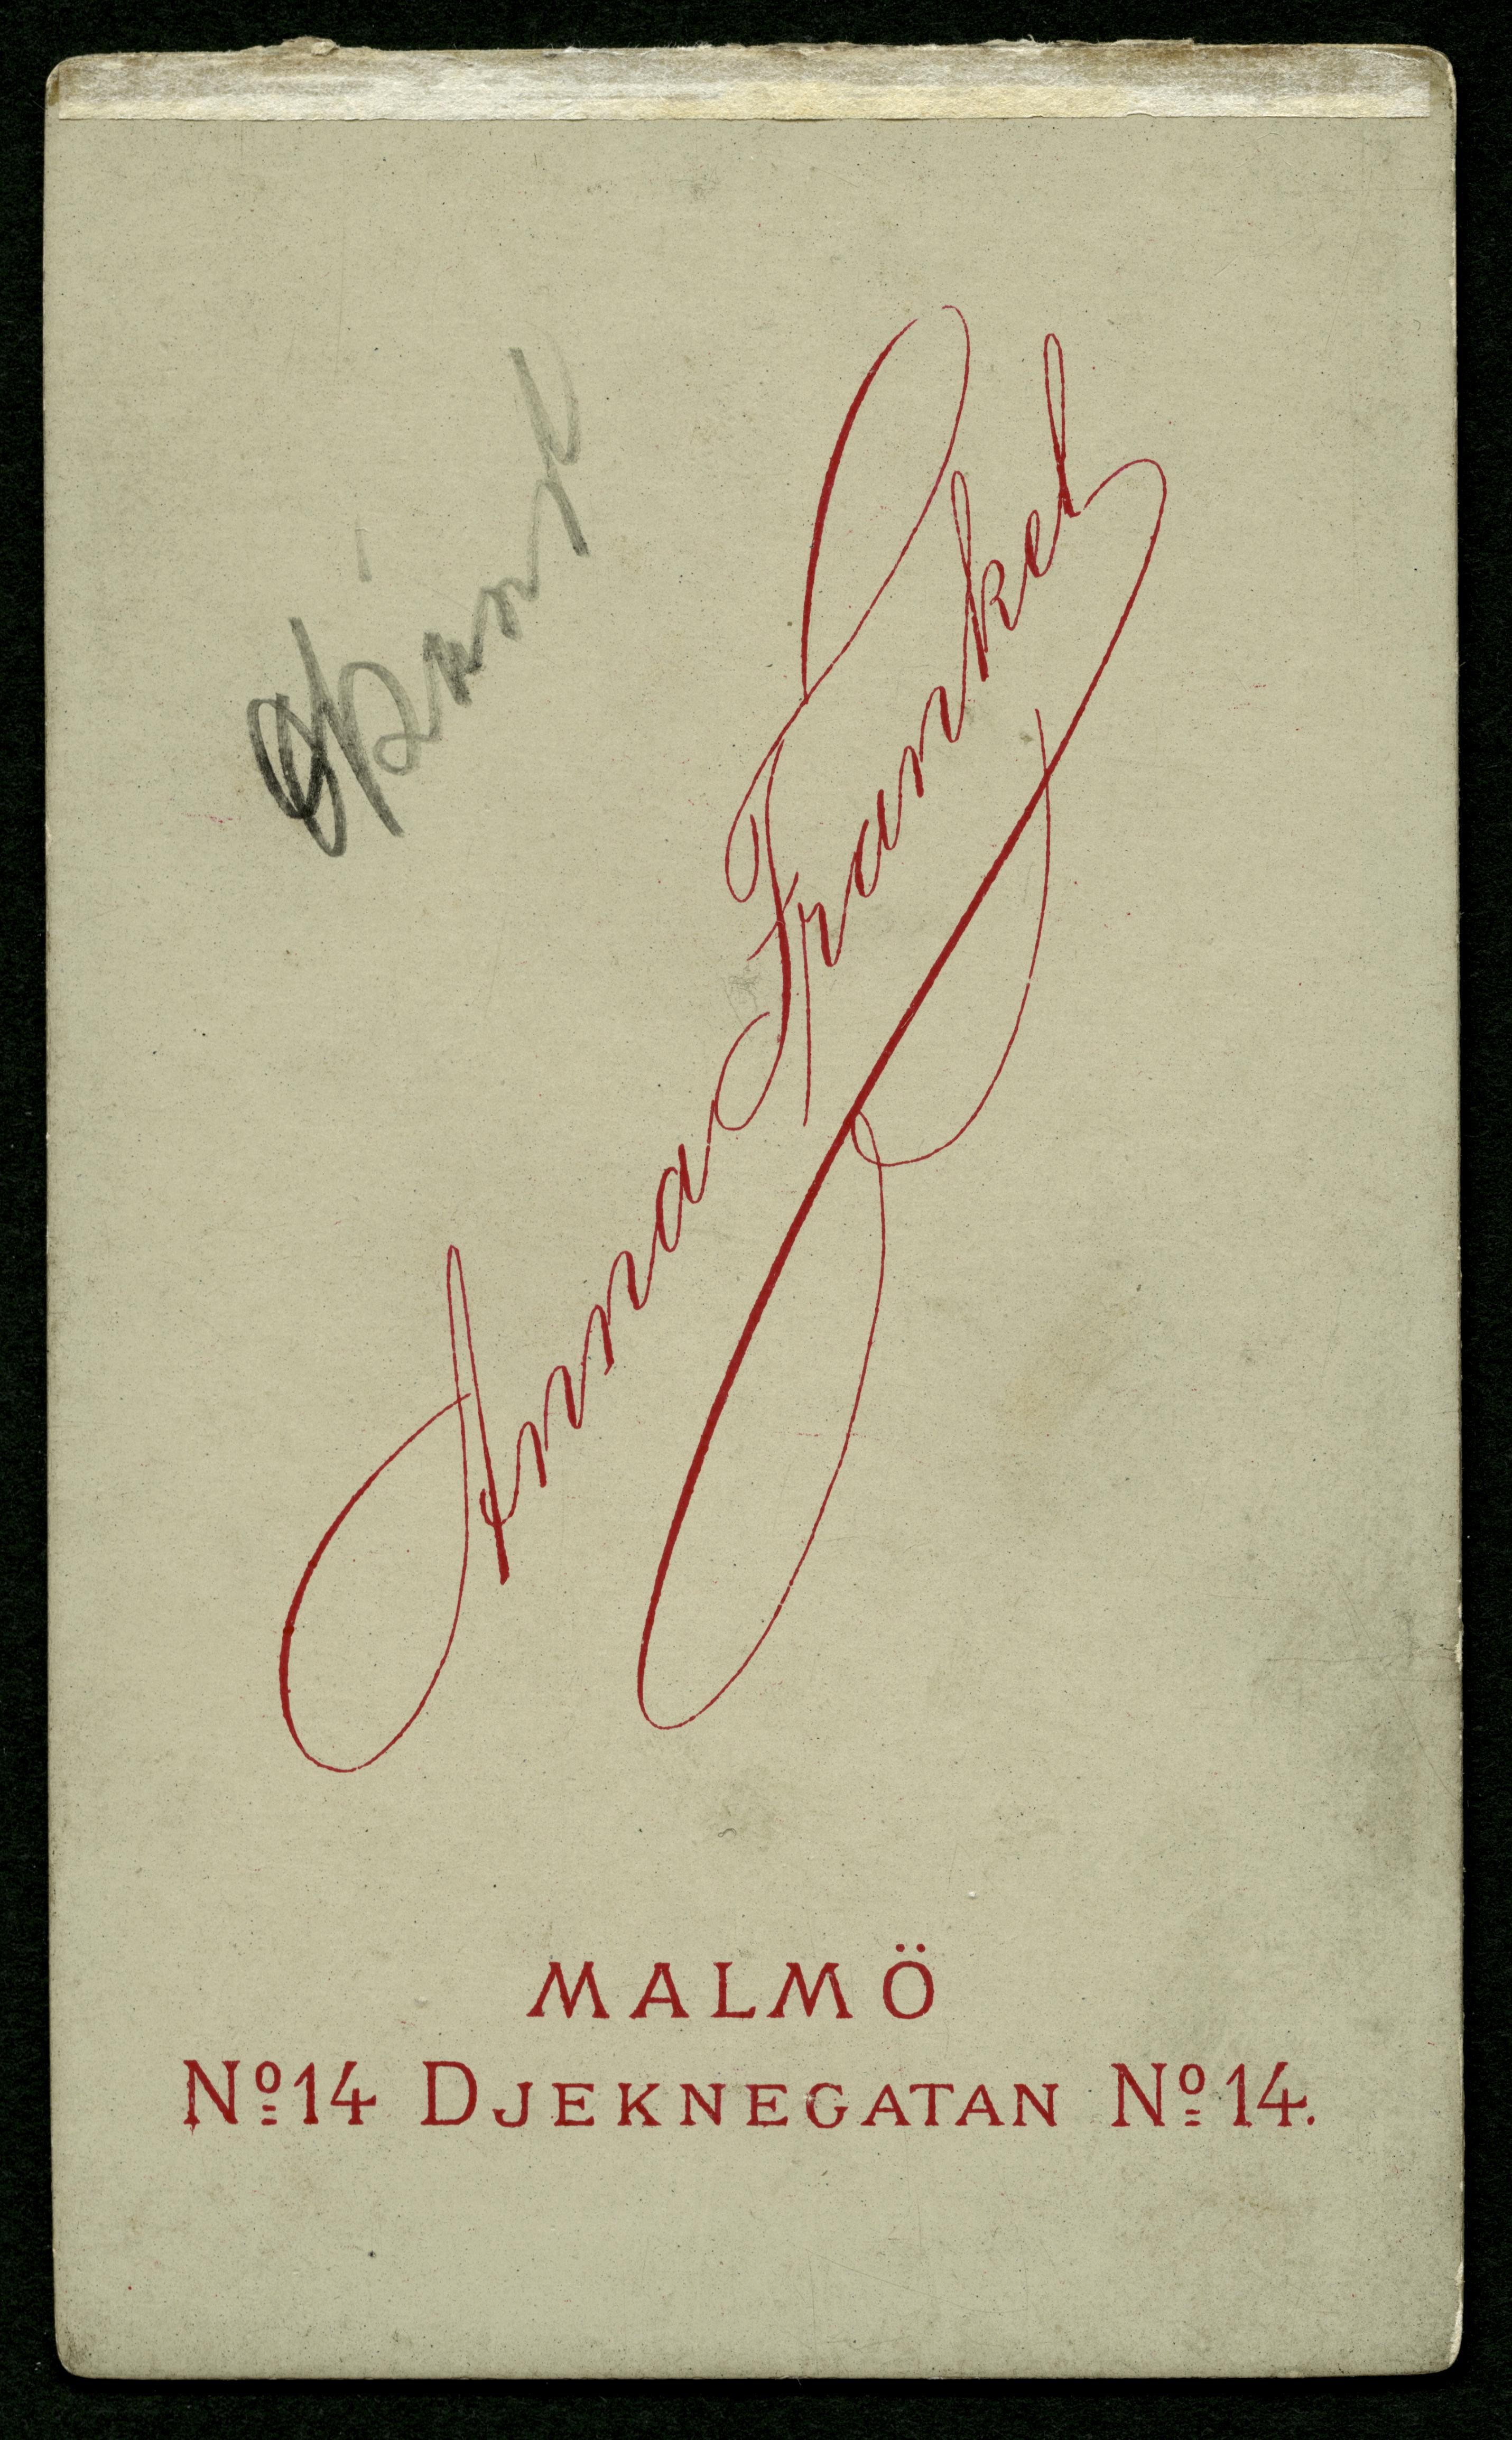 Anna Frankel
MALMÖ
Nº 14 DJEKNEGATAN Nº 14.